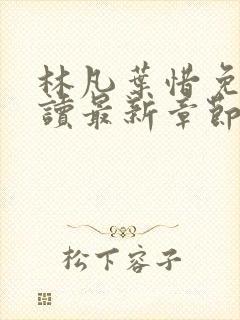 林凡葉惜免
讀最新章節
松下容子